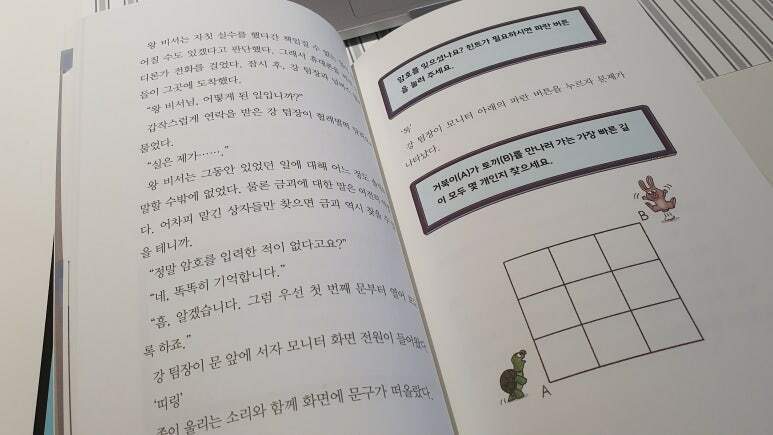 왕 비서는 자칫 실수를 했다간 책임질 수
어질 수도 있겠다고 판단했다. 그래서
다른가 전화를 걸었다. 잠시 후, 강 팀장과
들이 그곳에 도착했다.
“왕 비서님, 어떻게 된 일입니까?”
갑작스럽게 연락을 받은 강 팀장이 헐레벌떡
물었다.
“실은 제가…….”
왕 비서는 그동안 있었던 일에 대해 어느 정도
말할 수밖에 없었다. 물론 금괴에 대한 말은
다. 어차피 맡긴 상자들만 찾으면 금괴 역시 찾을 수
을 테니까.
“정말 암호를 입력한 적이 없다고요?”
“네, 똑똑히 기억합니다.”
“흠, 알겠습니다. 그럼 우선 첫 번째 문부터 열어
록 하죠.”
강 팀장이 문 앞에 서자 모니터 화면 전원이 들어왔다
‘띠링’
종이 울리는 소리와 함께 화면에 문구가 떠올랐다.
암호를 잊으셨나요? 힌트가 필요하시면 파란 버튼
을 눌러 주세요.
강 팀장이 모니터 아래의 파란 버튼을 누르자 문제가
나타났다.
거북이(A)가 토끼(B)를 만나러 가는 가장 빠른 길
이 모두 몇 개인지 찾으세요.
B
A